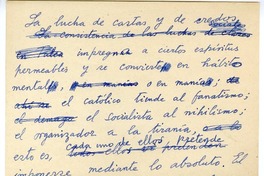 La lucha de castas y de credos
sociales
La consistencia de las luchas de clases
impregna a ciertos espíritus
permeables y se convierte en hábito
mental, o en manía;
el católico tiende al fanatismo;
el socialista al nihilismo;
el organizador a la tiranía,
esto es, cada uno de ellos pretende
todos ellos
imponerse mediante lo absoluto. El